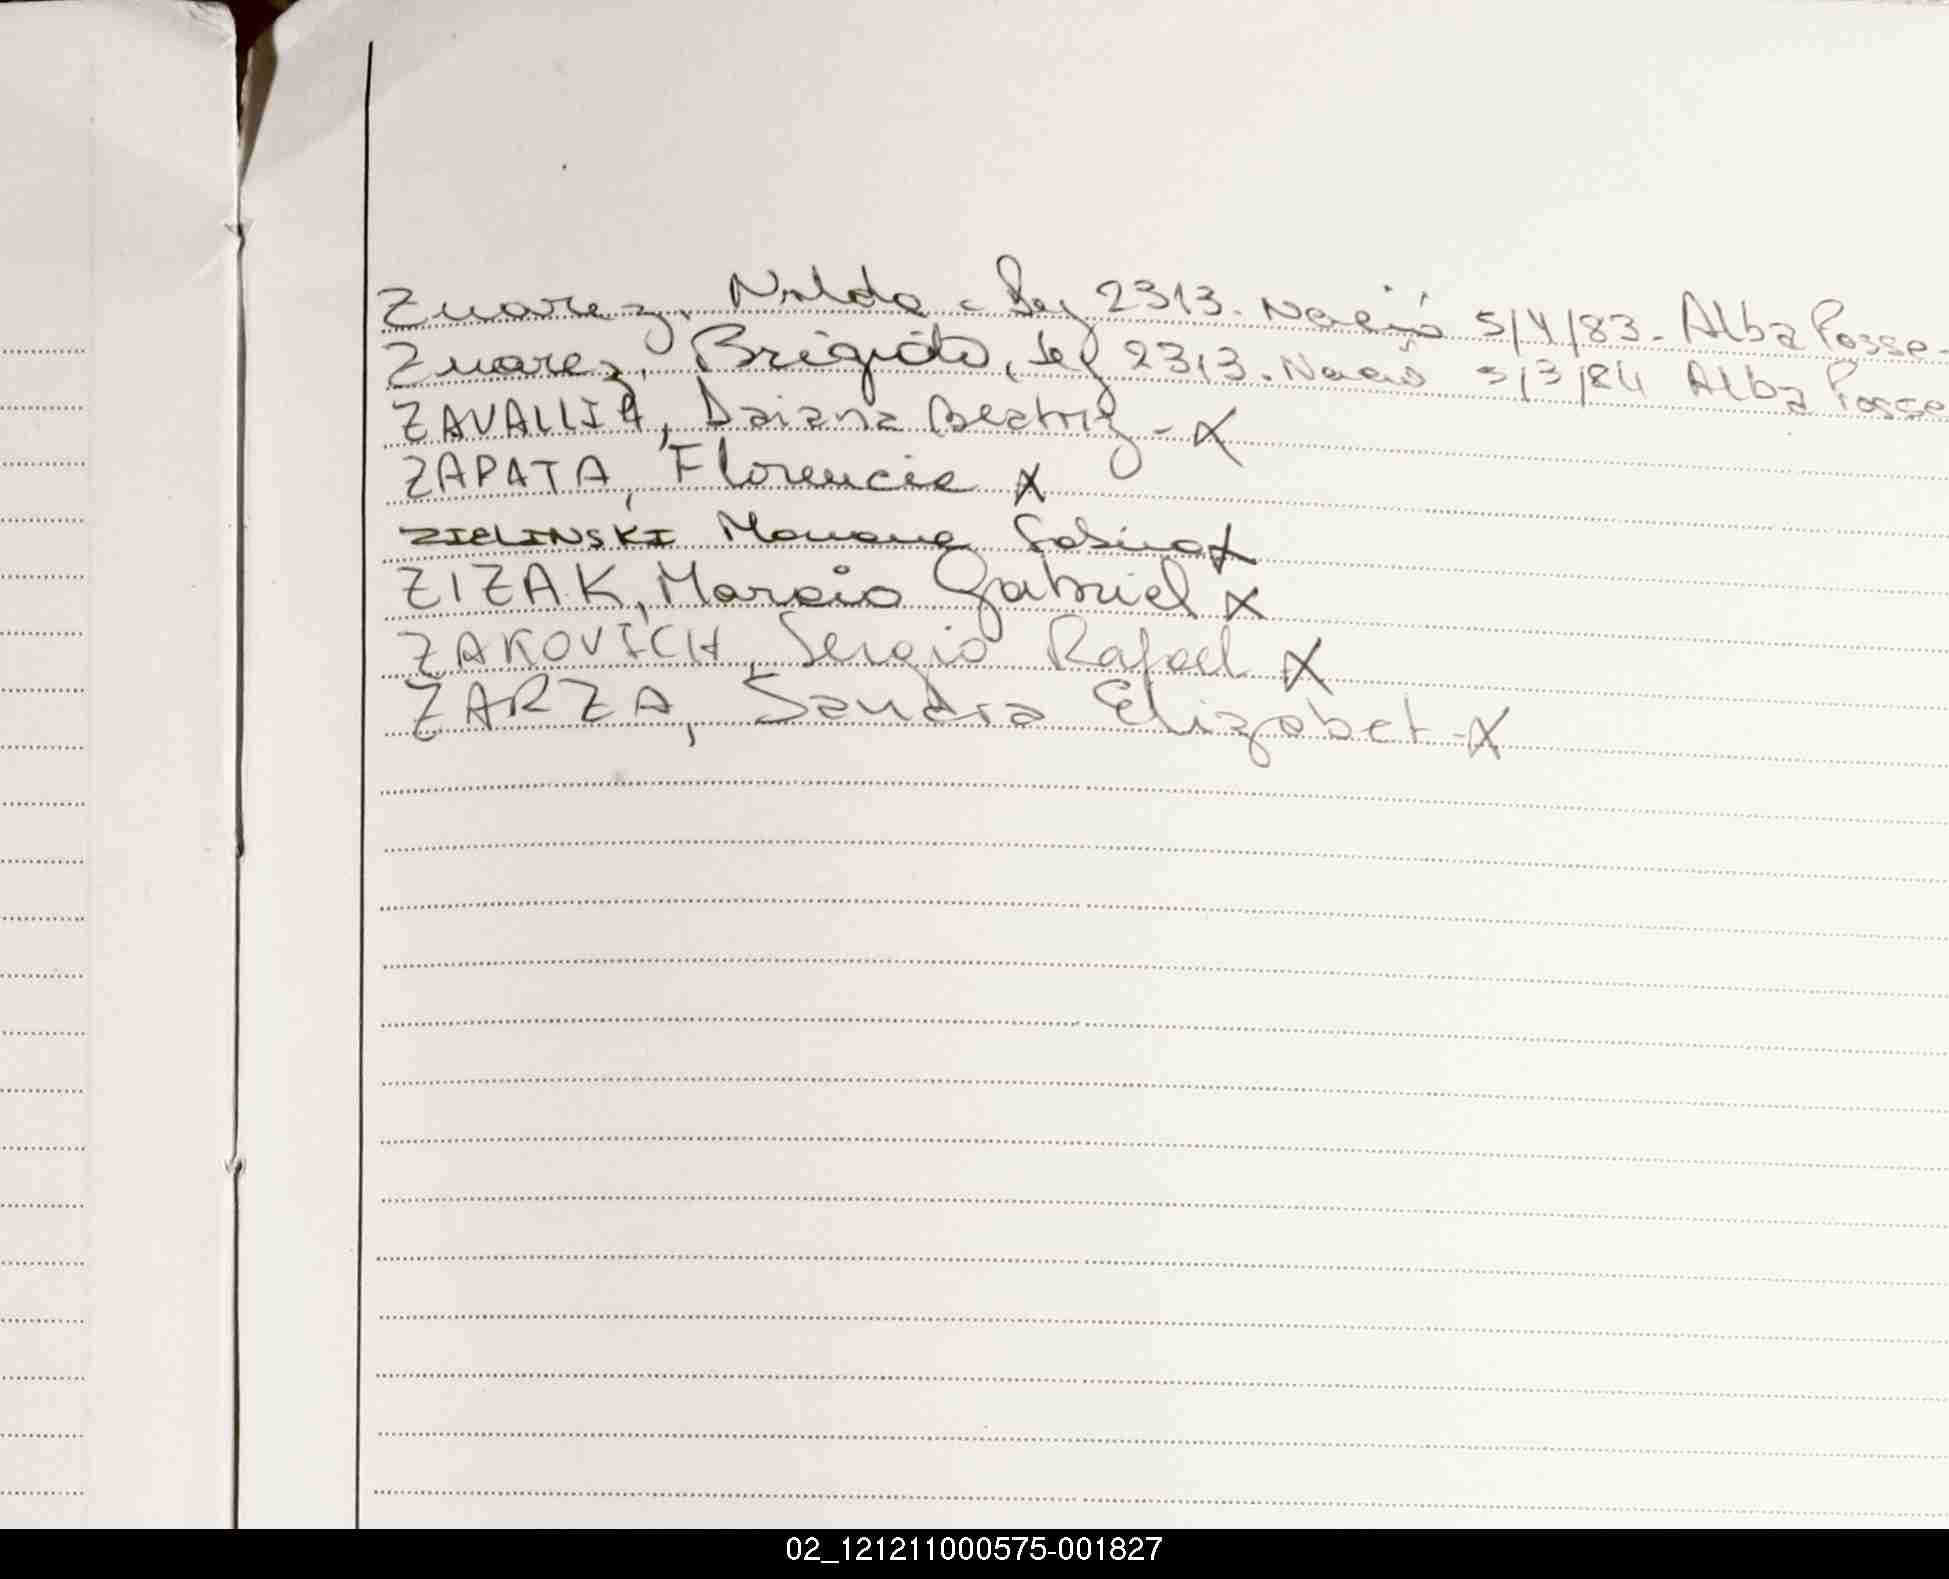 Zuarez, Nilda - Leg 2313. Nació 5/4/83. Alba Posse-
Zuarez, Brigido, Leg 2313. Nació 3/3/84 Alba Posse
ZAVALLIA, Daiana Beatriz - X
ZAPATA, Florencia X
ZIELINSKI Mariana Sabina X
ZIZAK, Marcio Gabriel X
ZAKOVICH, Sergio Rafael X
ZARZA, Sandra Elizabet - X
02_121211000575-001827